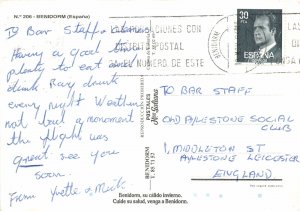 N.º 206 - BENIDORM (España)
To Bar Staff & 
Having a good time
plenty to eat and
drink. 
every night Weather
not but a monument
the flight was
great see you
soon.
From Yvette & Mick
CON
POSTAL
EL NUMERO DE ESTE
BENIDORM
30
PTA
ESPAÑA
CORREOS
TO BAR STAFF
OLD AYLESTONE SOCIAL
CLUB
1, MIDDLETON ST
AYLESTONE LEICESTER
ENGLAND
BENIDORM
Benidorm, su cálido invierno.
Cuide su salud, venga a Benidorm.